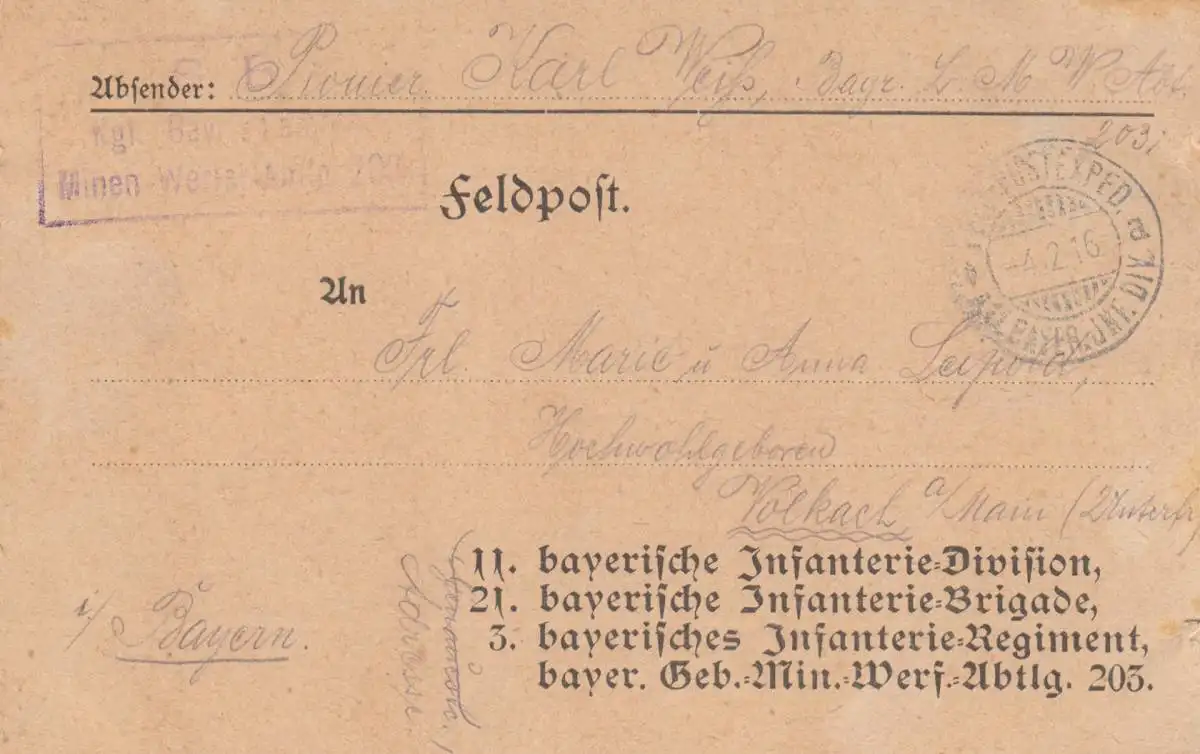 Absender: Pionier Karl Weiß, Bayr. L. M. W. Abt.
203
Kgl. Bay.
Minen-Werfer
Feldpost.
POSTEXPED. d. K. D.
-4.2.16
BAYER. INF. DIV.
An
Frl. Marie u Anna
Hochwohlgeboren
Volkach a/Main (Unterfr
11. bayerische Infanterie-Division,
21. bayerische Infanterie-Brigade,
3. bayerisches Infanterie-Regiment,
bayer. Geb.-Min.-Werf.-Abtlg. 203.
i/ Bayern.
Adresse